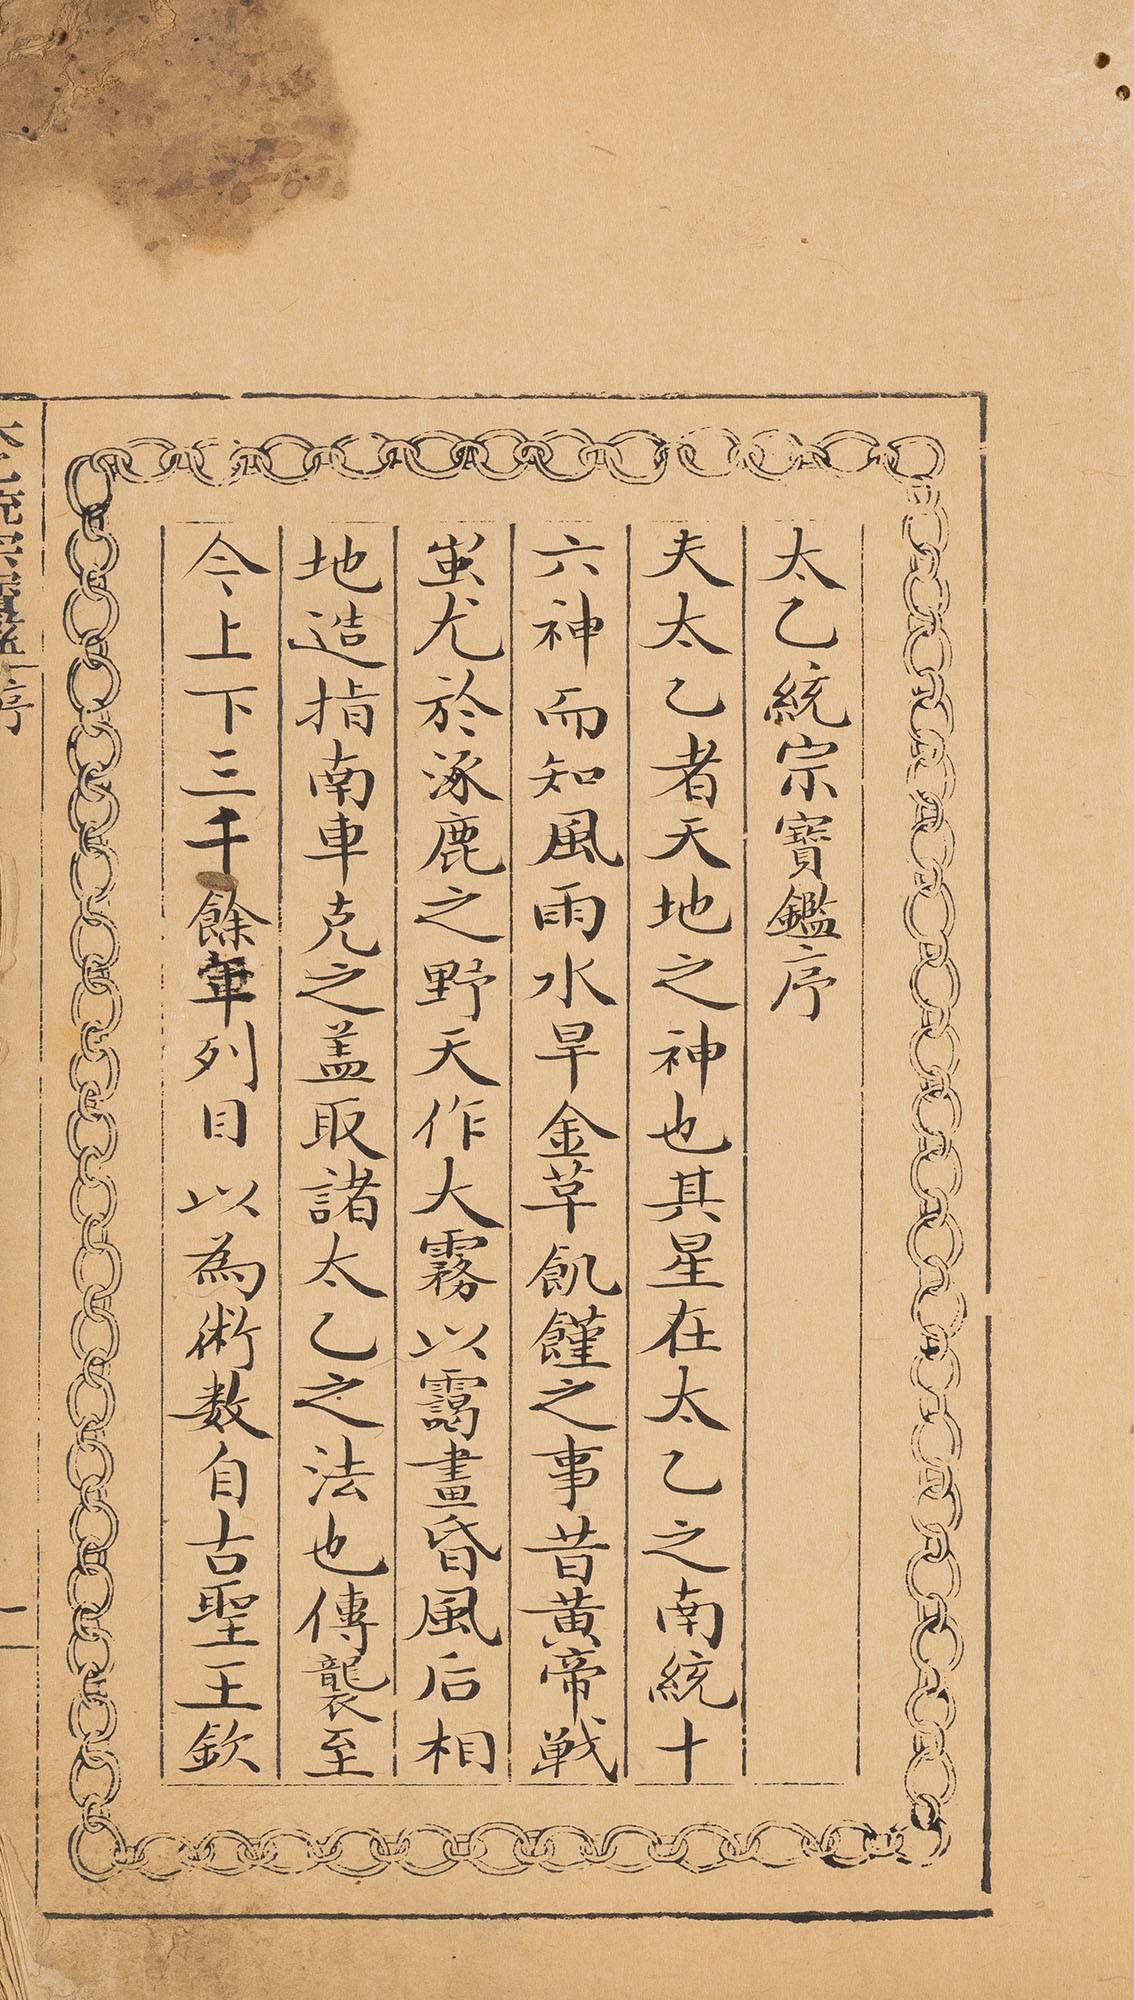 太乙統宗寶鑑序
夫太乙者天地之神也其星在太乙之南統十
六神而知風雨水旱金草飢饉之事昔黄帝戦
蚩尤於涿鹿之野天作大霧以靄晝昏風后相
地造指南車克之盖取諸太乙之法也傳襲至
今上下三千餘軍列目以為術数自古聖王欽
太乙統宗寶鑑序
一